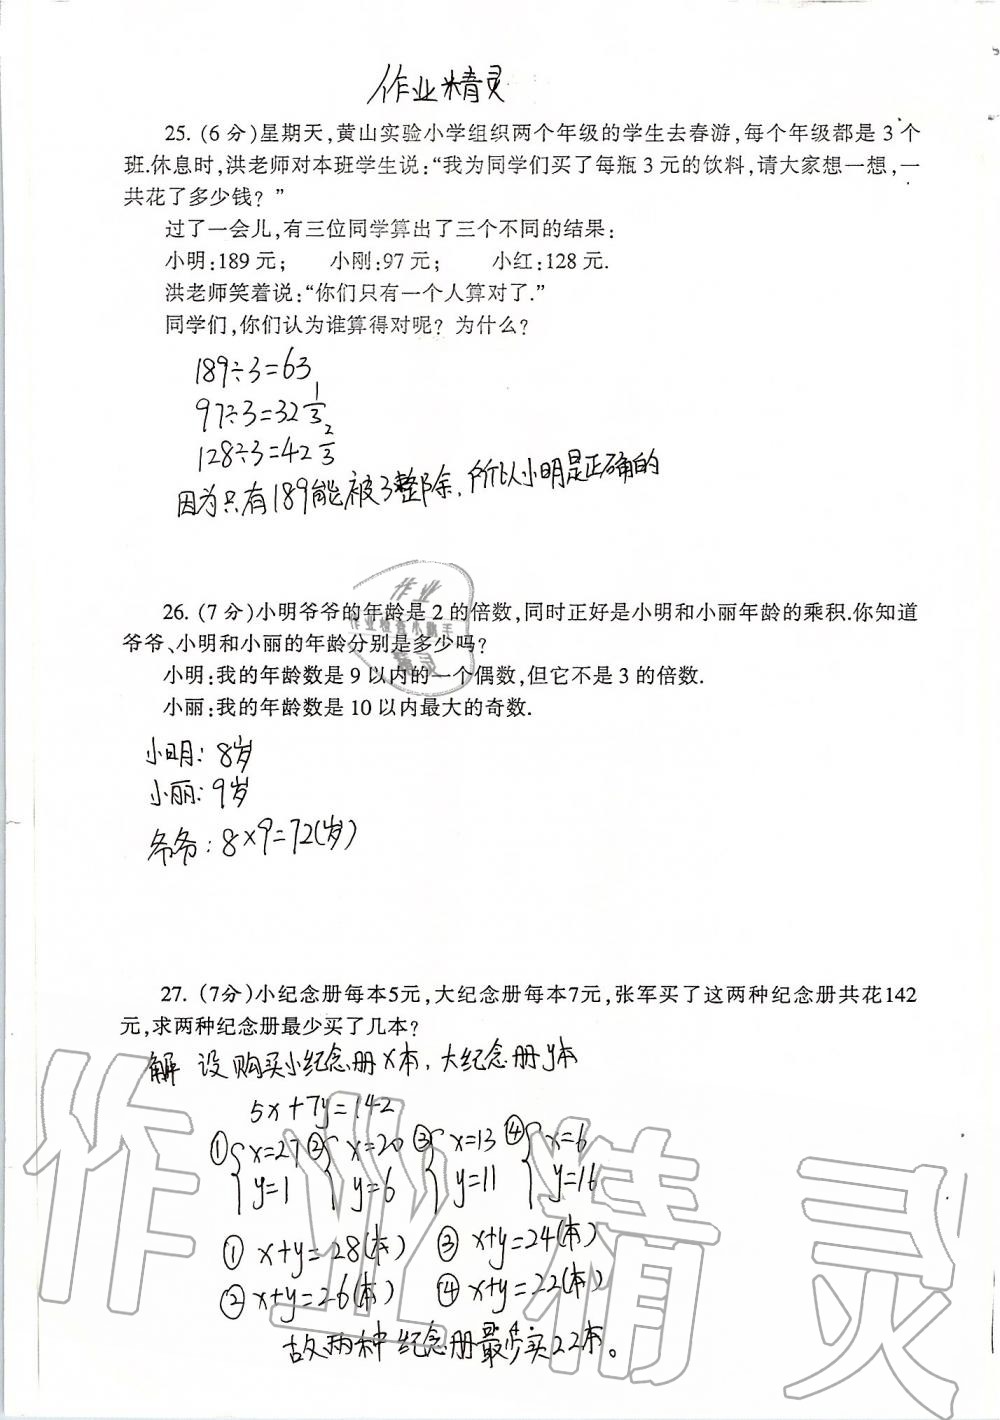 作业精灵
25. (6分)星期天,黄山实验小学组织两个年级的学生去春游,每个年级都是3个
班.休息时,洪老师对本班学生说:“我为同学们买了每瓶3元的饮料,请大家想一想,一
共花了多少钱?”
过了一会儿,有三位同学算出了三个不同的结果:
小明:189元; 小刚:97元; 小红:128元.
洪老师笑着说:“你们只有一个人算对了.”
同学们,你们认为谁算得对呢?为什么?
189÷3=63
97÷3=32 1/3
128÷3=42 2/3
因为只有189能被3整除,所以小明是正确的
26. (7分)小明爷爷的年龄是2的倍数,同时正好是小明和小丽年龄的乘积.你知道
爷爷、小明和小丽的年龄分别是多少吗?
小明:我的年龄数是9以内的一个偶数,但它不是3的倍数.
小丽:我的年龄数是10以内最大的奇数.
小明: 8岁
小丽: 9岁
爷爷: 8×9=72(岁)
27. (7分)小纪念册每本5元,大纪念册每本7元,张军买了这两种纪念册共花142
元,求两种纪念册最少买了几本?
解 设购买小纪念册x本,大纪念册y本
5x+7y=142
① x=27 ② x=20 ③ x=13 ④ x=6
y=1 y=6 y=11 y=16
① x+y=28(本) ③ x+y=24(本)
② x+y=26(本) ④ x+y=22(本)
故两种纪念册最少买22本。
作业精灵